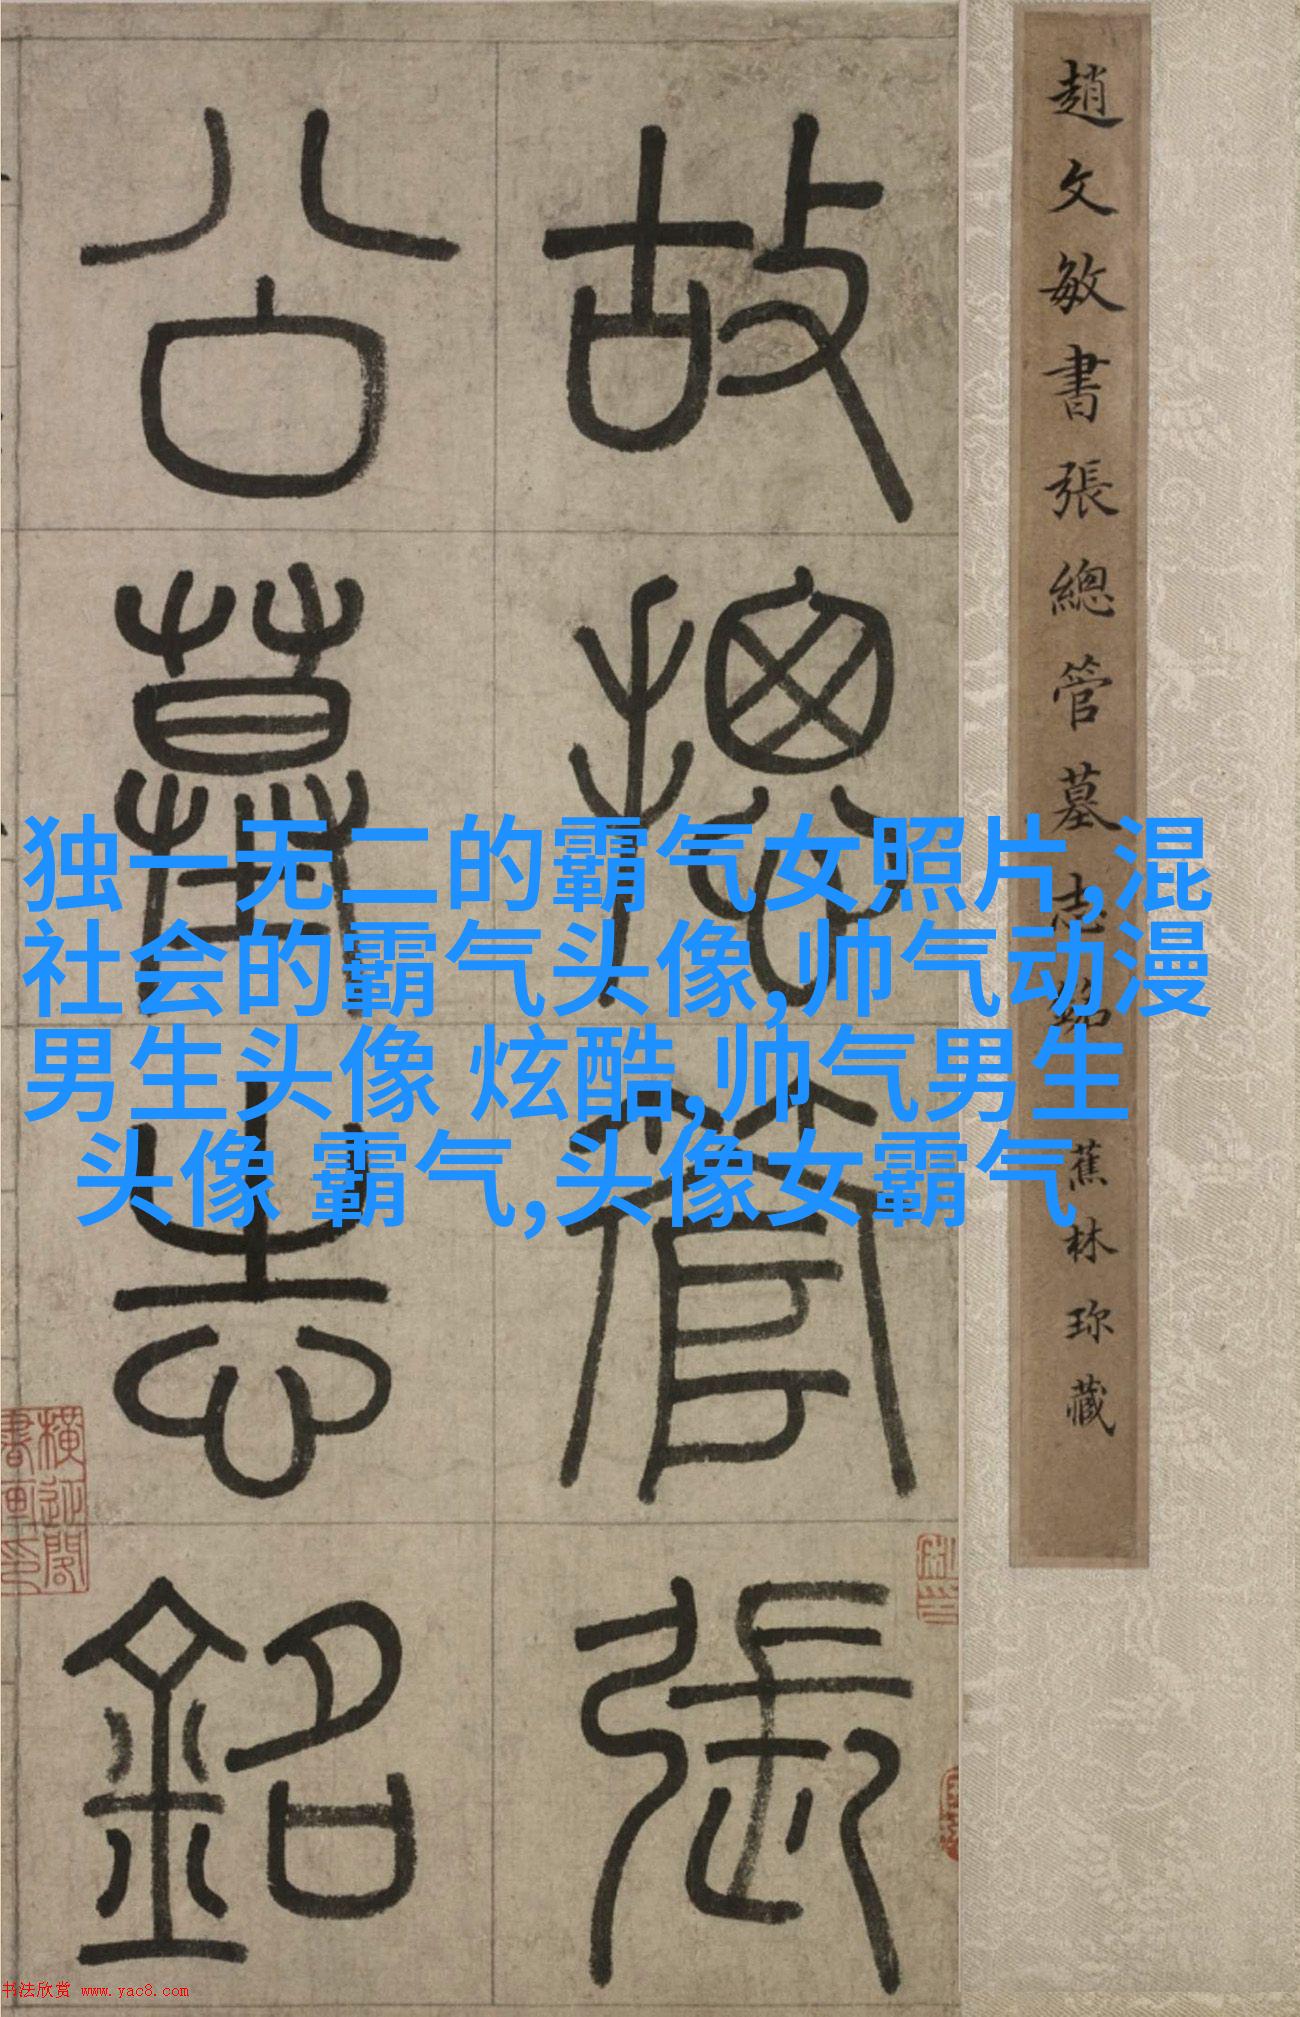 趙文敏書張總管墓志銘
蕉林珍藏
故總管張
公墓志銘
独一无二的霸气女照片,混
社会的霸气头像,帅气动漫
男生头像 炫酷,帅气男生
头像 霸气,头像女霸气
书法欣赏 www.yac8.com